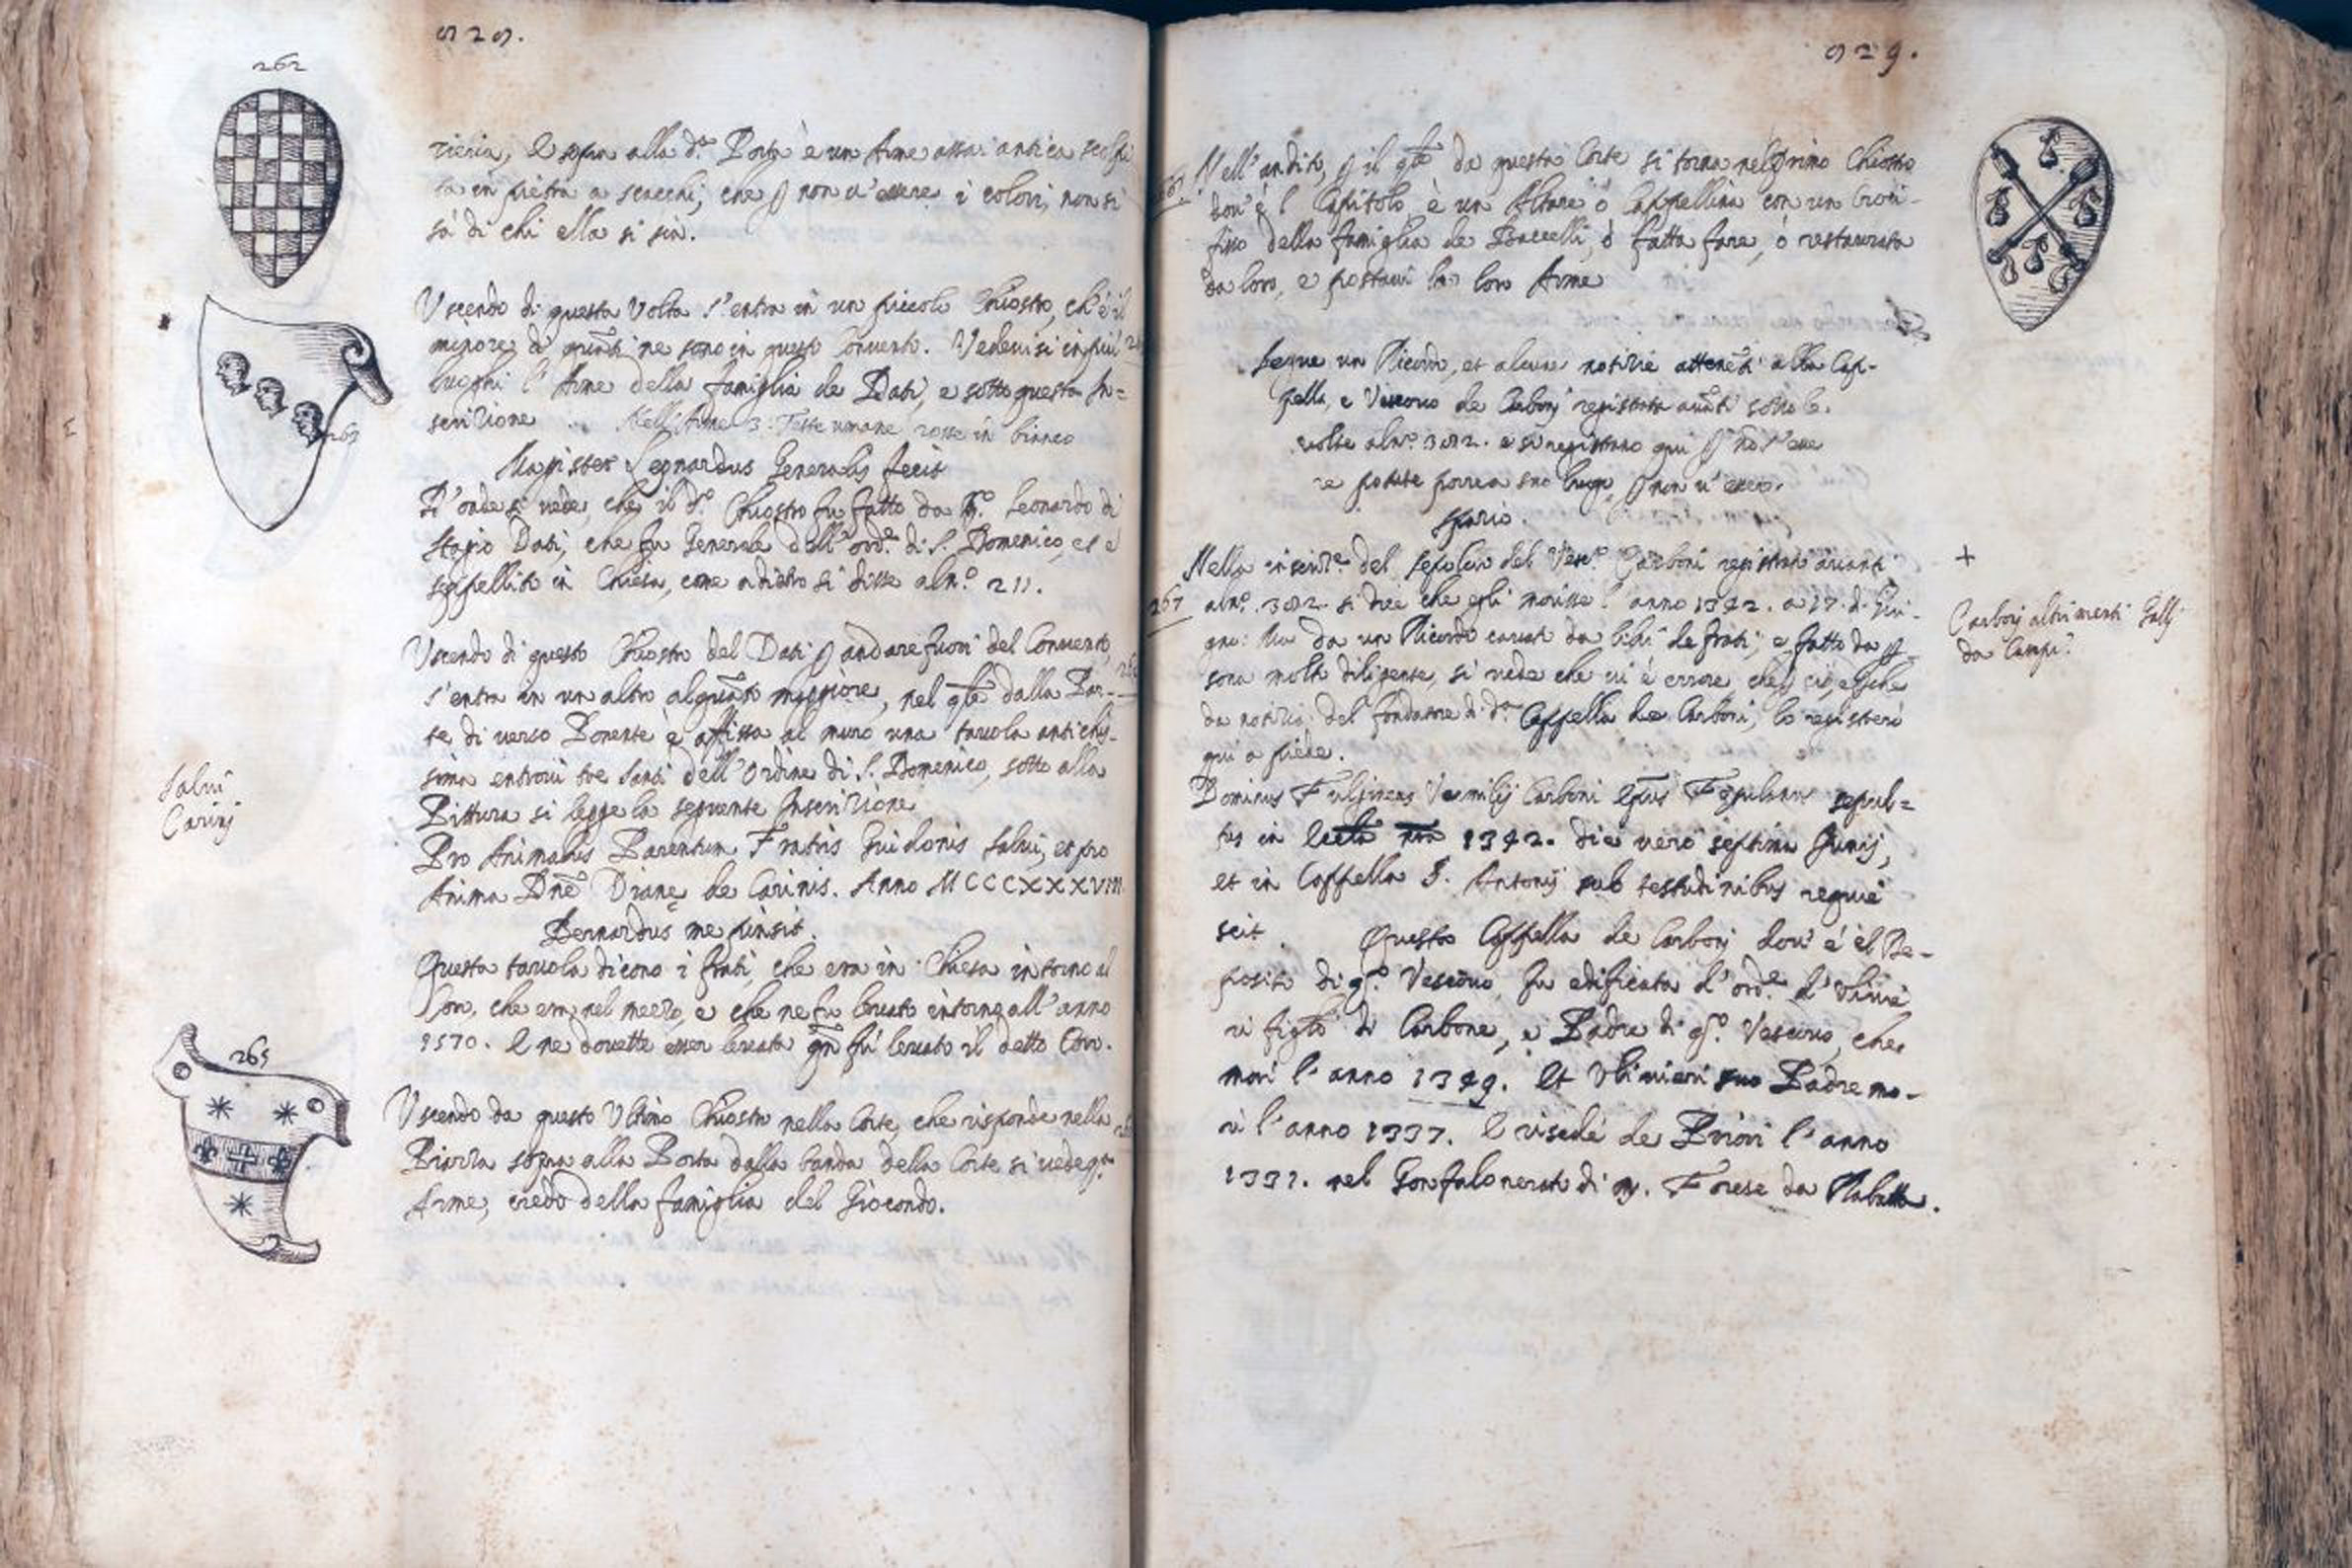 262
rieria, e sopra alla d.ª Porta è un Arme assai antica scolpi
ta in pietra a scacchi, che p non v'essere i colori, non si
sà di chi ella si sia.
Uscendo di questa Volta s'entra in un piccolo Chiostro, ch'è il
minore di quanti ne sono in questo Convento. Vedevisi in più
luoghi l'Arme della famiglia de Dati, e sotto questa In=
scrizione .. Nell'Arme 3. Teste umane rosse in bianco
263
Magister Leonardus Generalis fecit
D'onde si vede, che il d.º Chiostro fu fatto da Leonardo di
Stagio Dati, che fu Generale dell'ord.e di S. Domenico, et è
seppellito in Chiesa, come adietro si disse al n.º 211.
Uscendo di questo Chiostro del Dati p andare fuori del Convento,
s'entra in un altro alquanto maggiore, nel qle dalla Par-
te di verso Ponente è affissa al muro una tavola antichis-
sima entrovi tre Santi dell'Ordine di S. Domenico, sotto alla
Pittura si legge la seguente Inscrizione
Salvi
Carinj
Pro Animabus Parentum Fratris Guidonis Salvi, et pro
Anima Dnē Diane de Carinis. Anno MCCCXXXVIII
Bernardus me pinsit.
Questa tavola dicono i frati, che era in Chiesa intorno al
Coro, che era nel mezzo, e che ne fu levata intorno all'anno
1570. e ne dovette esser levata qn fu levato il detto Coro.
265
Uscendo da questo Ultimo Chiostro nella Corte, che risponde nella
Piazza sopra alla Porta dalla banda della Corte si vede q.ta
Arme, credo della famiglia del Giocondo.
929.
Nell'andito, p il qle da questa Corte si torna nel primo Chiostro
dov'è l Capitolo è un Altare ò Cappellina con un Croci-
fisso della famiglia de Baccelli, ò fatta fare, ò restaurata
da loro, e postavi la loro Arme
Segue un Ricordo, et alcune notizie attenēti alla Cap-
pella, e Vescovo de Carbonj registrata avāti sotto le
volte al n.º 382. e si registrano qui p nō s'esse
re potute porre a suo luogo p non v'essere
spazio.
+
Nella inscriz.e del Sepolcro del Vesc.º Carboni registrata avanti
267
al n.º 382. si dice che egli morisse l'anno 1342. a 17. di Giu-
gno: Ma da un Ricordo cavato da libri de frati, e fatto da p
sona molto diligente, si vede che vi è errore
da notizia del fondatore di d.ª Cappella de Carboni, lo registerò
qui a piede.
Carbonj altrimenti Gallj
da Campi
Dominus Carboni Sepul=
tus in 1342. die vero septima Junij,
et in Cappella S. Antonij sub testudinibus requie
scit. Questa Cappella de Carbonj dov'è il De-
posito di q.º Vescovo, fu edificata d'ord.e d'Ulivie
ri figlo di Carbone, e Padre di q.º Vescovo, che
morì l'anno 1349. et Ulivieri suo Padre mo-
rì l'anno 1337. e risedè de Priori l'anno
1331. nel Gonfalonerato di m. Forese da Rabatta.